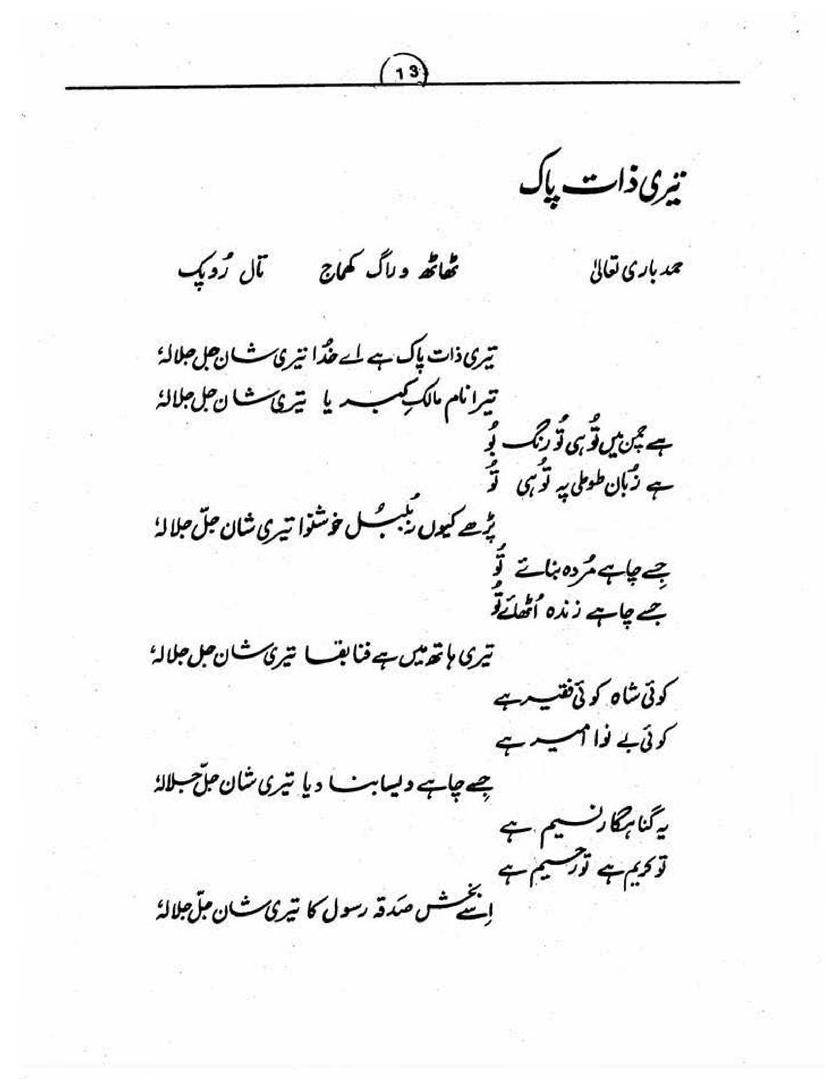 13
تیری ذات پاک
حمد باری تعالیٰ ٹھاٹھ و راگ کھماج تال رُوپک
تیری ذات پاک ہے اے خُدا تیری شان جل جلالہٗ
تیرا نام مالکِ کبریا تیری شان جل جلالہٗ
ہے چمن میں تُو ہی تُو رنگ بُو
ہے زُبان طوطی پہ تُو ہی تُو
پڑھے کیوں نہ بُلبُل خوشنوا تیری شان جلّ جلالہٗ
جِسے چاہے مُردہ بنائے تُو
جسے چاہے زندہ اُٹھائے تُو
تیری ہاتھ میں ہے فنا بقا تیری شان جل جلالہٗ
کوئی شاہ کوئی فقیر ہے
کوئی بے نوا امیر ہے
جِسے چاہے ویسا بنا دیا تیری شان جلّ جلالہٗ
یہ گناہگار نسیم ہے
تو کریم ہے تو رحیم ہے
اِسے بخش صَدقہ رسول کا تیری شان جلّ جلالہٗ